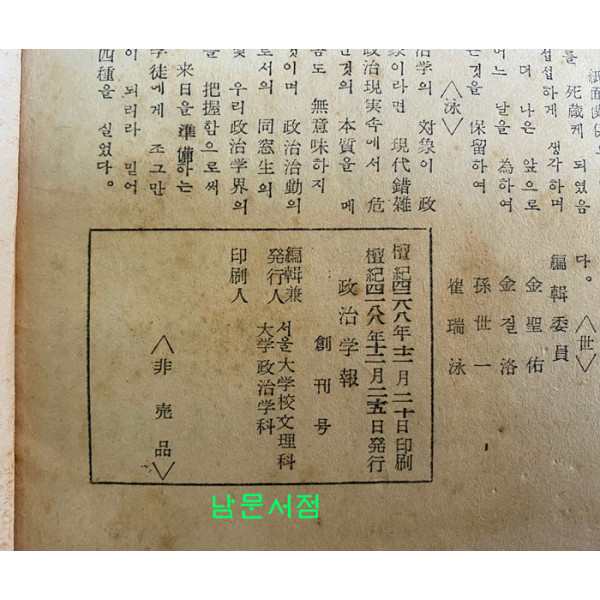 를 死蔵케 되였음
섭섭하게 생각하며
더 나은 앞으로
어느 달을 為하여
은것을 保留하여
〈泳〉
治学의 対象이 政
象이라면 現代錯雑
政治現実속에서 危
인것의 本質을 메
름도 無意味하지
것이며 政治活動의
로서의 同窓生의
및 우리政治学界의
을 把握함으로써
来日을 準備하는
学徒에게 조그만
이 되리라 믿어
四種을 실었다。
다。〈世〉
編輯委員
金聖佑
金질洛
孫世一
崔瑞泳
檀紀四二八八年十二月二十日印刷
檀紀四二八八年十二月二五日発行
政治学報
創刊号
編輯兼
発行人
서울大学校文理科
大学政治学科
印刷人
〈非売品〉
남문서점